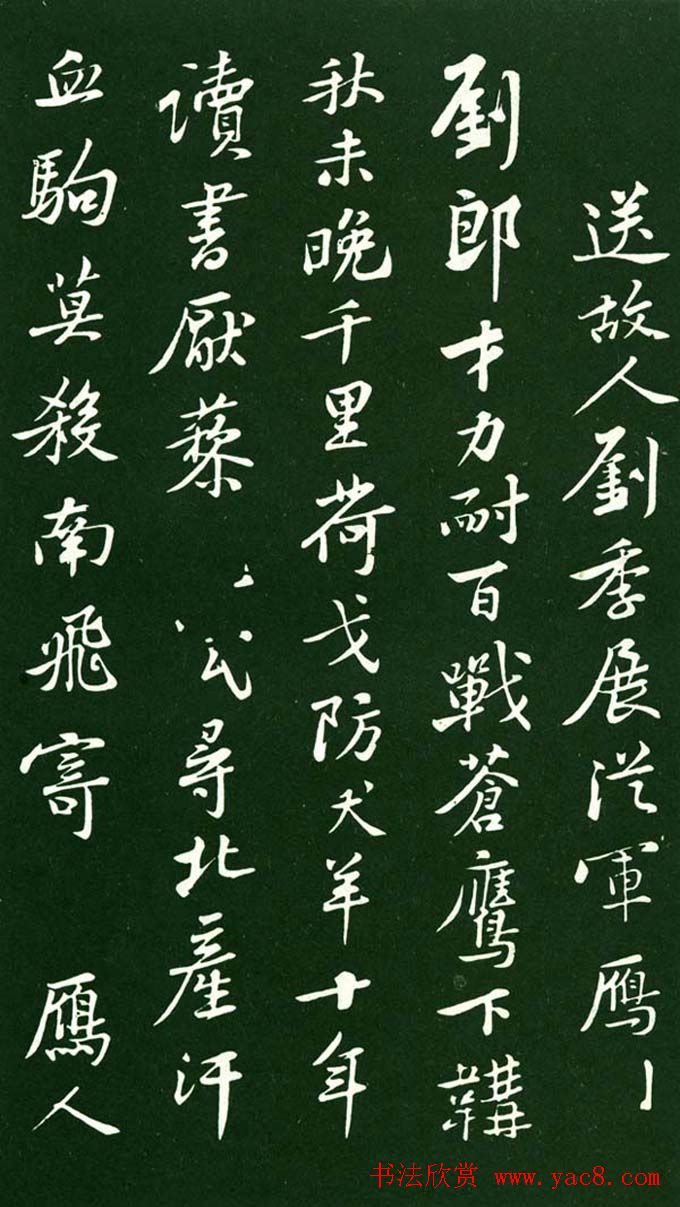 送故人劉季展從軍鴈
劉郎才力耐百戰蒼鷹下鞲
秋未晚千里荷戈防犬羊十年
讀書厭藜尋北產汗
血駒莫殺南飛寄鴈人
书法欣赏 www.yac8.com